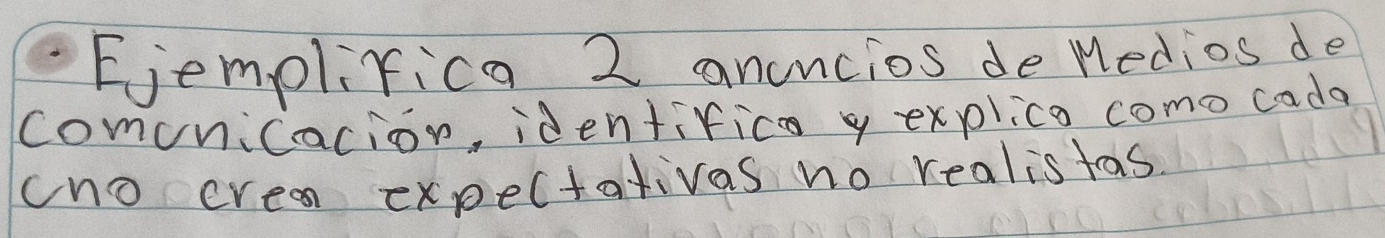 • Ejemplifica 2 anuncios de Medios de
comunicación, identifica y explica como cada
uno crea expectativas no realistas.